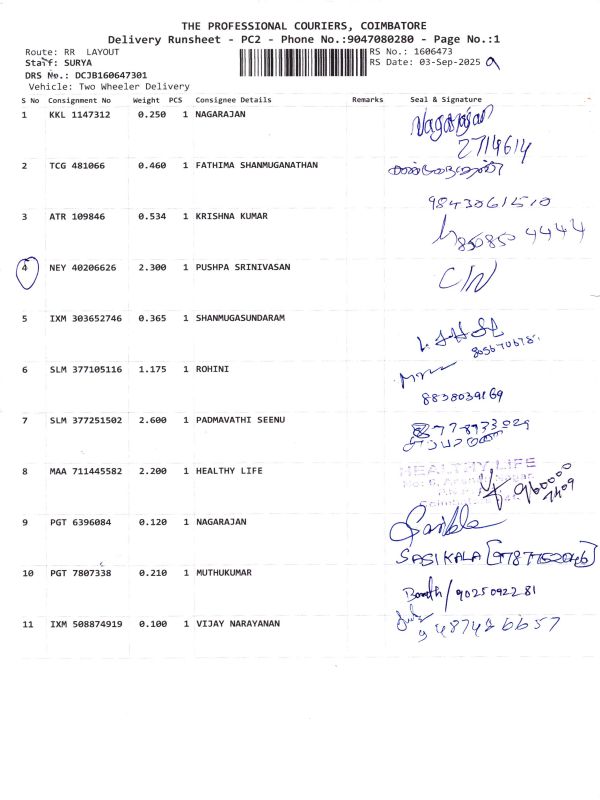 THE PROFESSIONAL COURIERS, COIMBATORE
Delivery Runsheet - PC2 - Phone No.:9047080280 - Page No.:1
Route: RR LAYOUT
RS No.: 1606473
Staff: SURYA
RS Date: 03-Sep-2025
DRS No.: DCJB160647301
Vehicle: Two Wheeler Delivery
S No Consignment No Weight PCS Consignee Details Remarks Seal & Signature
1 KKL 1147312 0.250 1 NAGARAJAN Nagarajan
2714614
2 TCG 481066 0.460 1 FATHIMA SHANMUGANATHAN
9843061510
3 ATR 109846 0.534 1 KRISHNA KUMAR
850850 4444
4 NEY 40206626 2.300 1 PUSHPA SRINIVASAN C/N
5 IXM 303652746 0.365 1 SHANMUGASUNDARAM
6 SLM 377105116 1.175 1 ROHINI
8838039169
7 SLM 377251502 2.600 1 PADMAVATHI SEENU
8 MAA 711445582 2.200 1 HEALTHY LIFE HEALTHY LIFE
9 PGT 6396084 0.120 1 NAGARAJAN
SASIKALA
10 PGT 7807338 0.210 1 MUTHUKUMAR
9025092281
11 IXM 508874919 0.100 1 VIJAY NARAYANAN